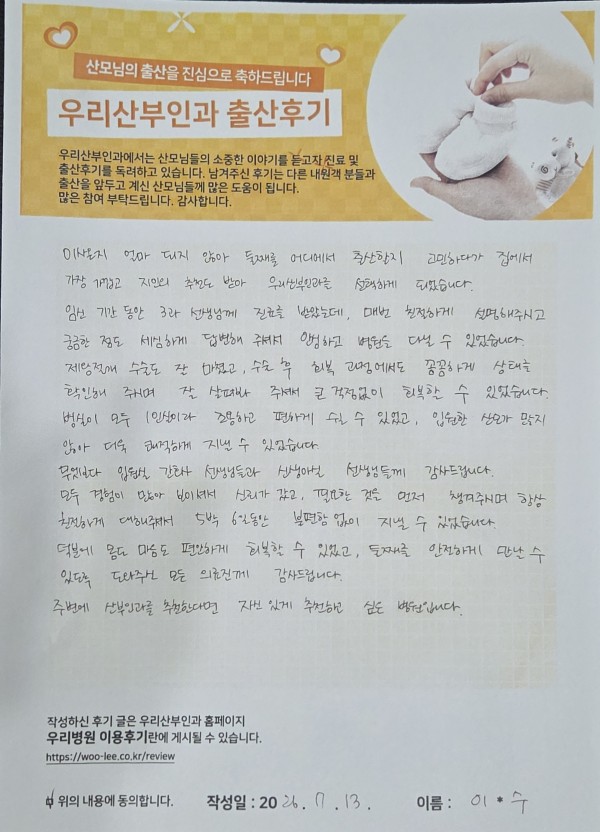 산모님의 출산을 진심으로 축하드립니다
우리산부인과 출산후기
우리산부인과에서는 산모님들의 소중한 이야기를 듣고자 진료 및
출산후기를 독려하고 있습니다. 남겨주신 후기는 다른 내원객 분들과
출산을 앞두고 계신 산모님들께 많은 도움이 됩니다.
많은 참여 부탁드립니다. 감사합니다.
이사온지 얼마 되지 않아 둘째를 어디에서 출산할지 고민하다가 집에서
가장 가깝고 지인의 추천도 받아 우리산부인과를 선택하게 되었습니다.
임신 기간 동안 3과 선생님께 진료를 받았는데, 매번 친절하게 설명해주시고
궁금한 점도 세심하게 답변해 주셔서 안심하고 병원을 다닐 수 있었습니다.
제왕절개 수술도 잘 마쳤고, 수술 후 회복 과정에서도 꼼꼼하게 상태를
확인해 주시며 잘 살펴봐 주셔서 큰 걱정없이 회복할 수 있었습니다.
병실이 모두 1인실이라 조용하고 편하게 쉴 수 있었고, 입원한 산모가 많지
않아 더욱 쾌적하게 지낼 수 있었습니다.
무엇보다 입원실 간호사 선생님들과 신생아실 선생님들께 감사드립니다.
모두 경험이 많아 보이셔서 신뢰가 갔고, 필요한 것을 먼저 챙겨주시며 항상
친절하게 대해주셔서 5박 6일동안 불편함 없이 지낼 수 있었습니다.
덕분에 몸도 마음도 편안하게 회복할 수 있었고, 둘째를 안전하게 만날 수
있도록 도와주신 모든 의료진께 감사드립니다.
주변에 산부인과를 추천한다면 자신 있게 추천하고 싶은 병원입니다.
작성하신 후기 글은 우리산부인과 홈페이지
우리병원 이용후기란에 게시될 수 있습니다.
https://woo-lee.co.kr/review
위의 내용에 동의합니다. 작성일 : 2026. 7. 13. 이름 : 이 * 수